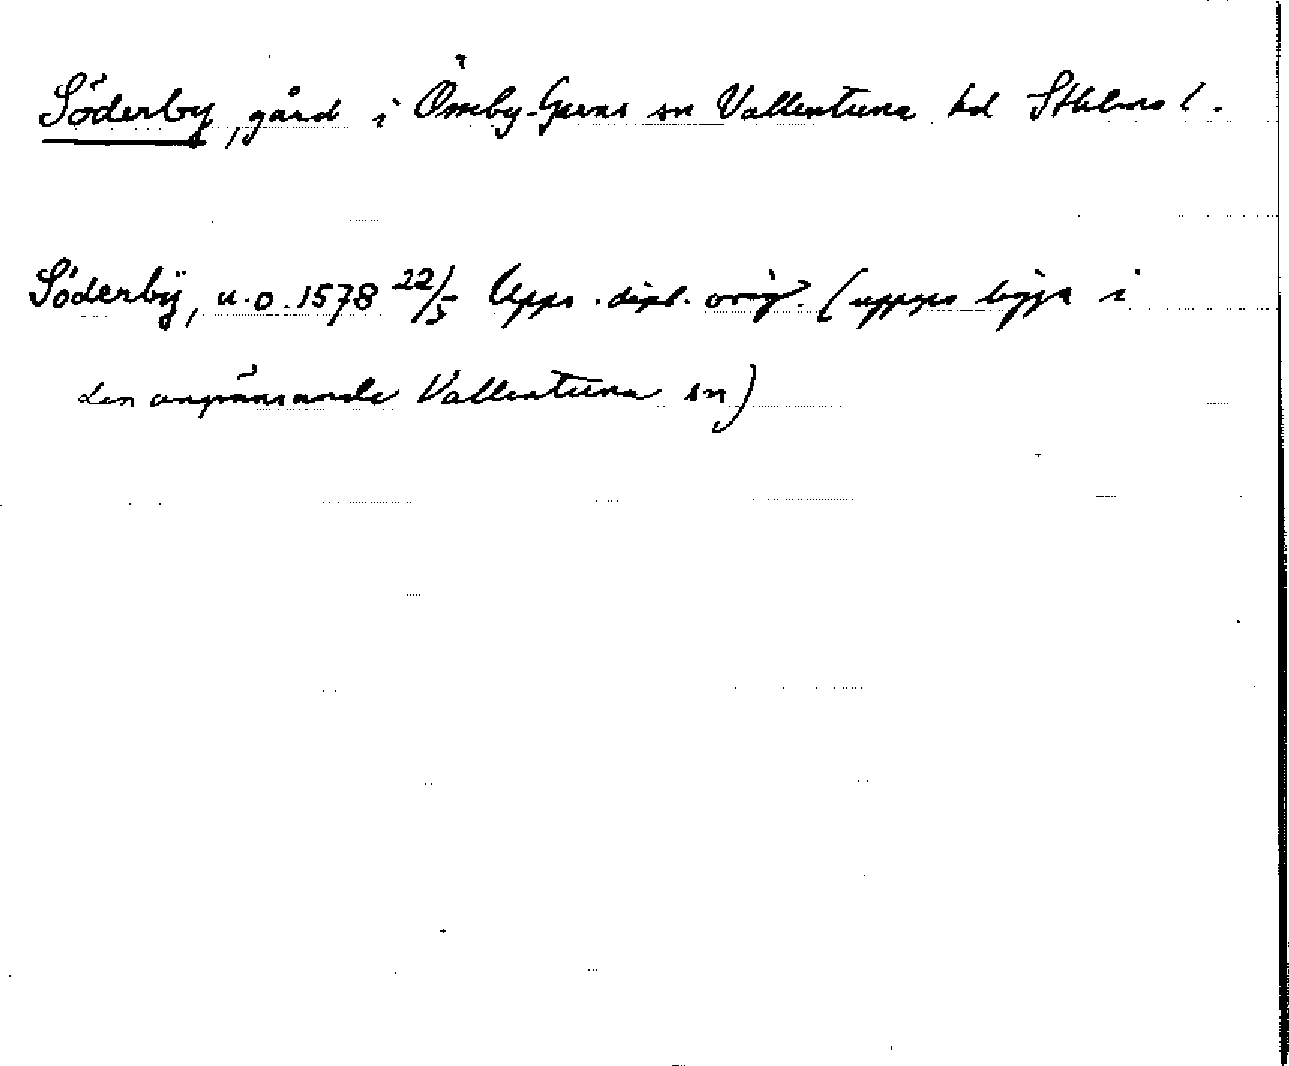 Söderby, gård i Össeby-Garns sn Vallentuna hd Sthlms l.
Söderbÿ, u.o. 1578 22/5 Upps. dipl. orig. (uppges ligga i
den angränsande Vallentuna sn)